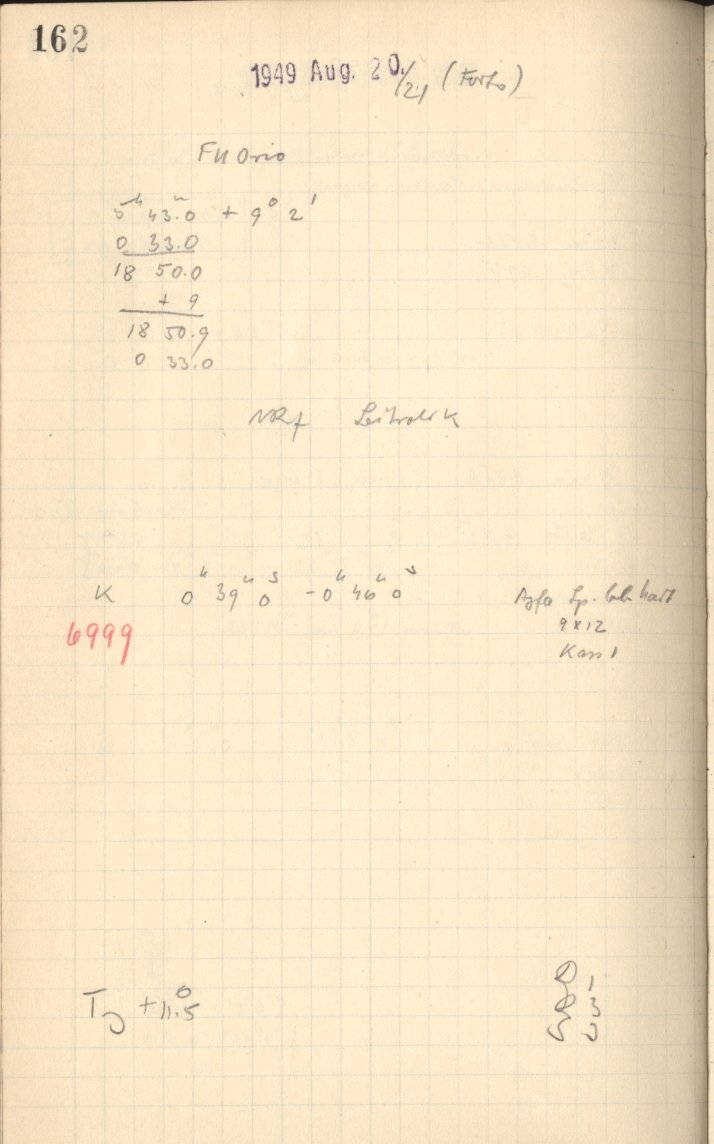 162
1949 Aug. 20./21 (Forts)
FU Orio
5ʰ 43.0ᵐ + 9° 2'
0 33.0
18 50.0
+ 9
18 50.9
0 33.0
Leitrohr K
K 0ʰ 39ᵐ 0ˢ - 0ʰ 46ᵐ 0ˢ Agfa Sp. blau hart
6999 9x12
Kass 1
T +11.5°
1
3